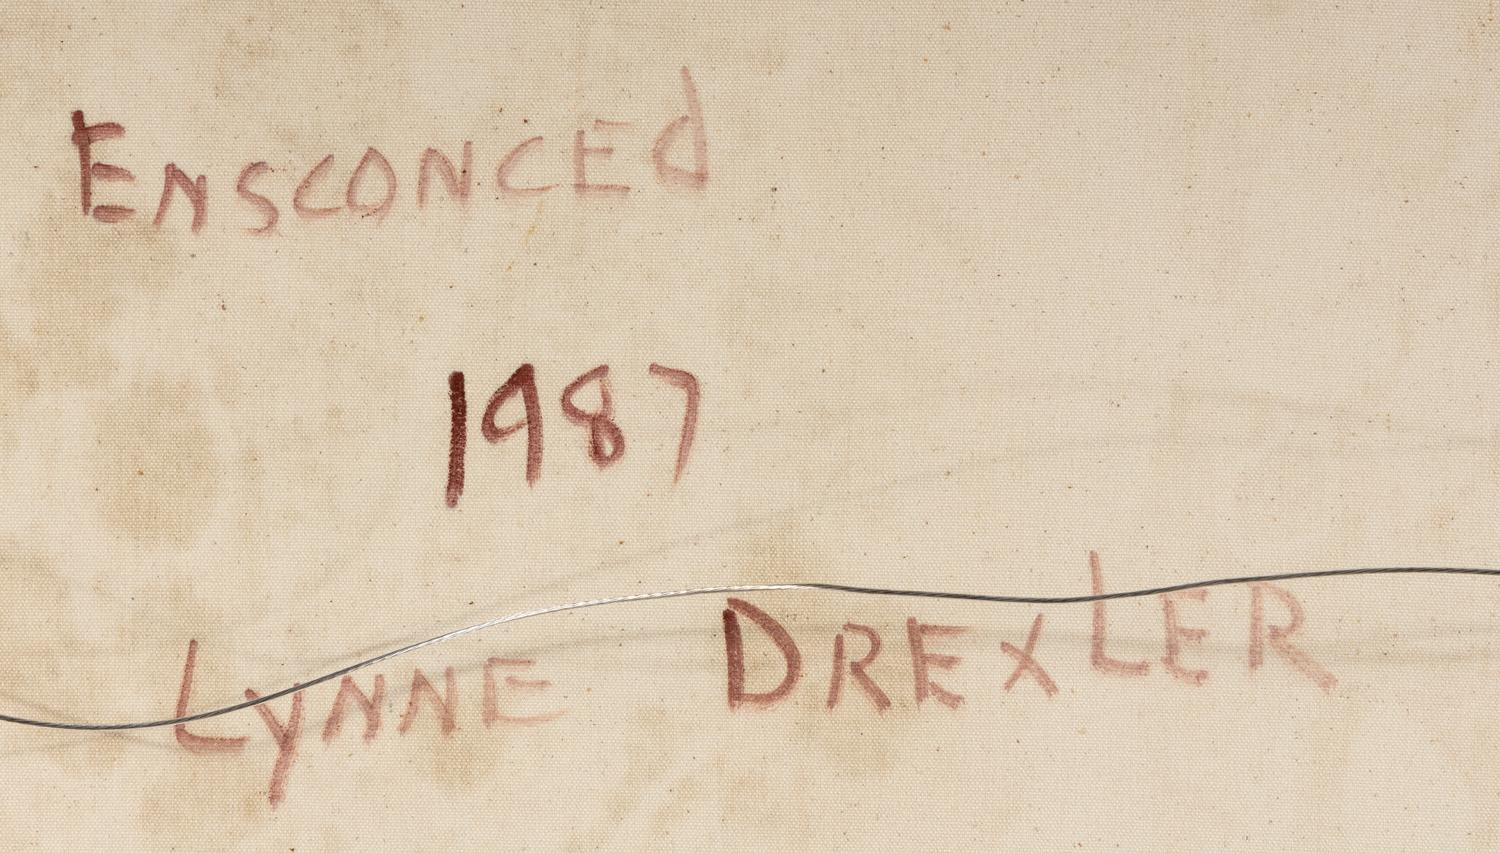 ENSCONCEd
1987
LyNNE DREXLER